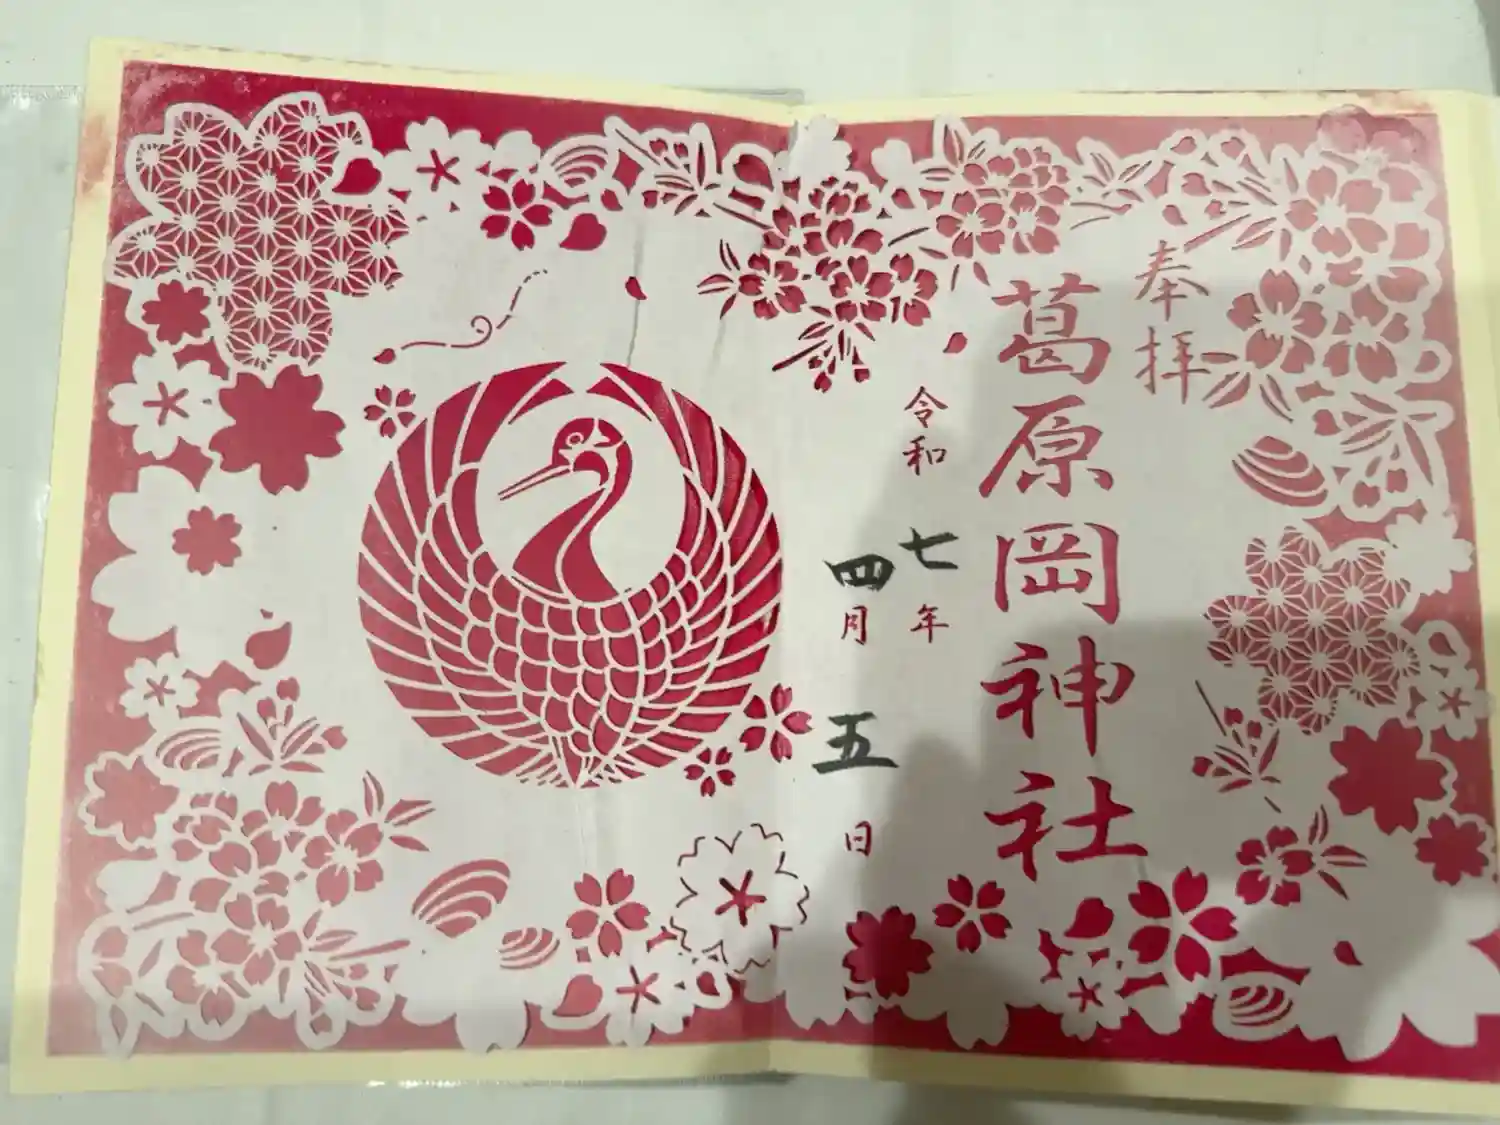 奉拝
葛原岡神社
令和七年
四月五日